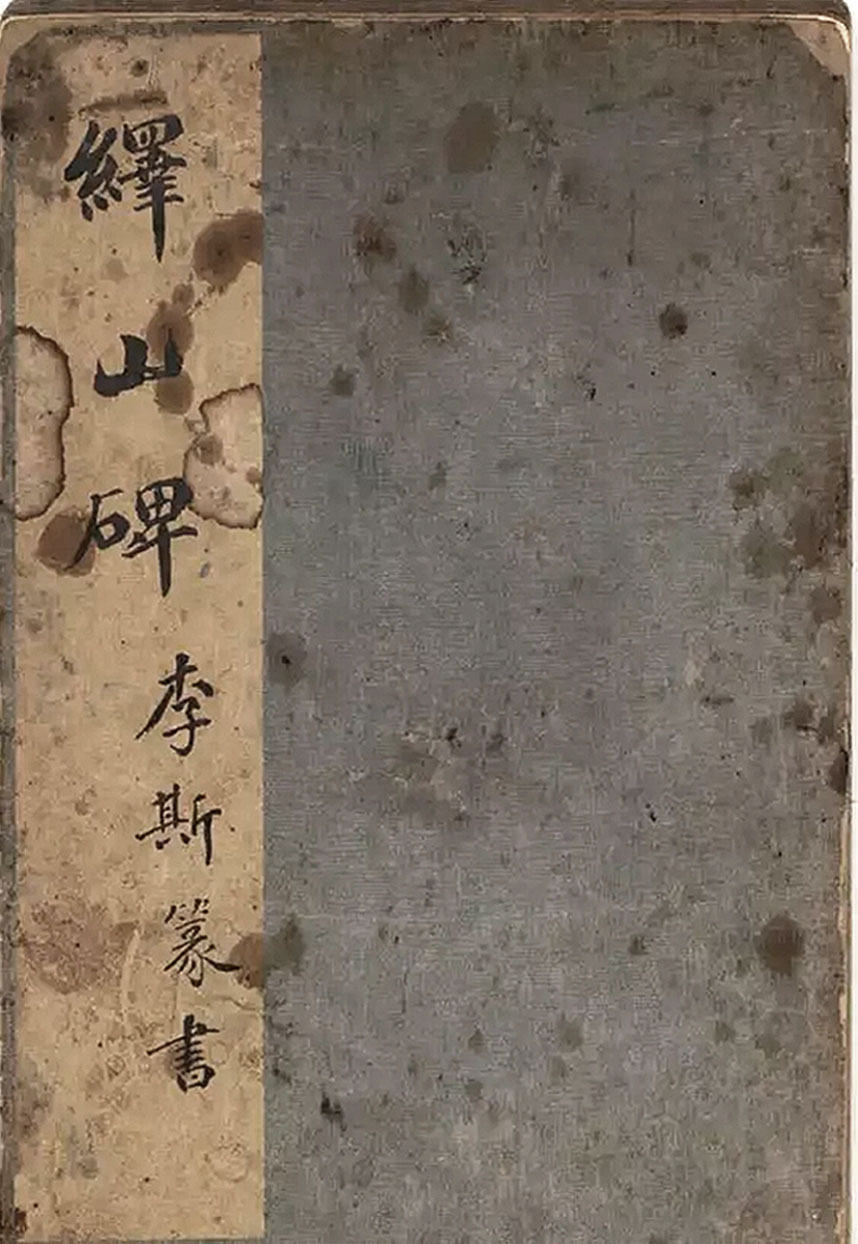 繹山碑
李斯篆書